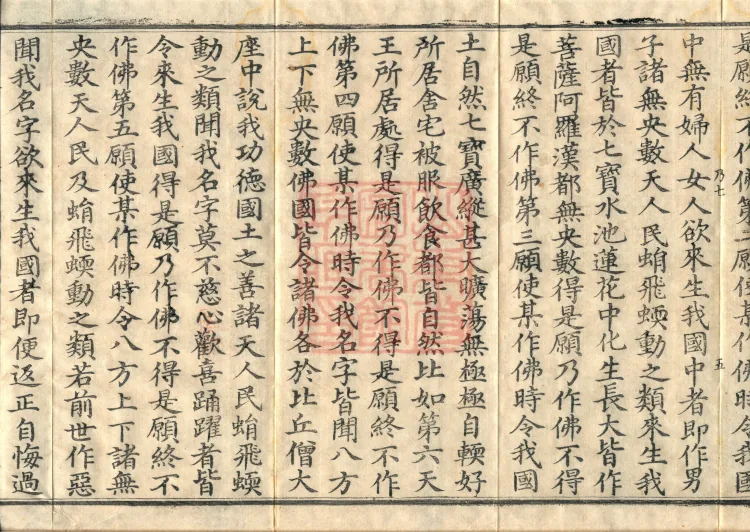 是願終不作佛第二願使某作佛時令我國
中無有婦人女人欲來生我國中者即作男
子諸無央數天人民蜎飛蝡動之類來生我
國者皆於七寶水池蓮花中化生長大皆作
菩薩阿羅漢都無央數得是願乃作佛不得
是願終不作佛第三願使某作佛時令我國
土自然七寶廣縱甚大曠蕩無極極自輭好
所居舍宅被服飲食都皆自然比如第六天
王所居處得是願乃作佛不得是願終不作
佛第四願使某作佛時令我名字皆聞八方
上下無央數佛國皆令諸佛各於比丘僧大
座中說我功德國土之善諸天人民蜎飛蝡
動之類聞我名字莫不慈心歡喜踊躍者皆
令來生我國得是願乃作佛不得是願終不
作佛第五願使某作佛時令八方上下諸無
央數天人民及蜎飛蝡動之類若前世作惡
聞我名字欲來生我國者即便返正自悔過
乃七
五